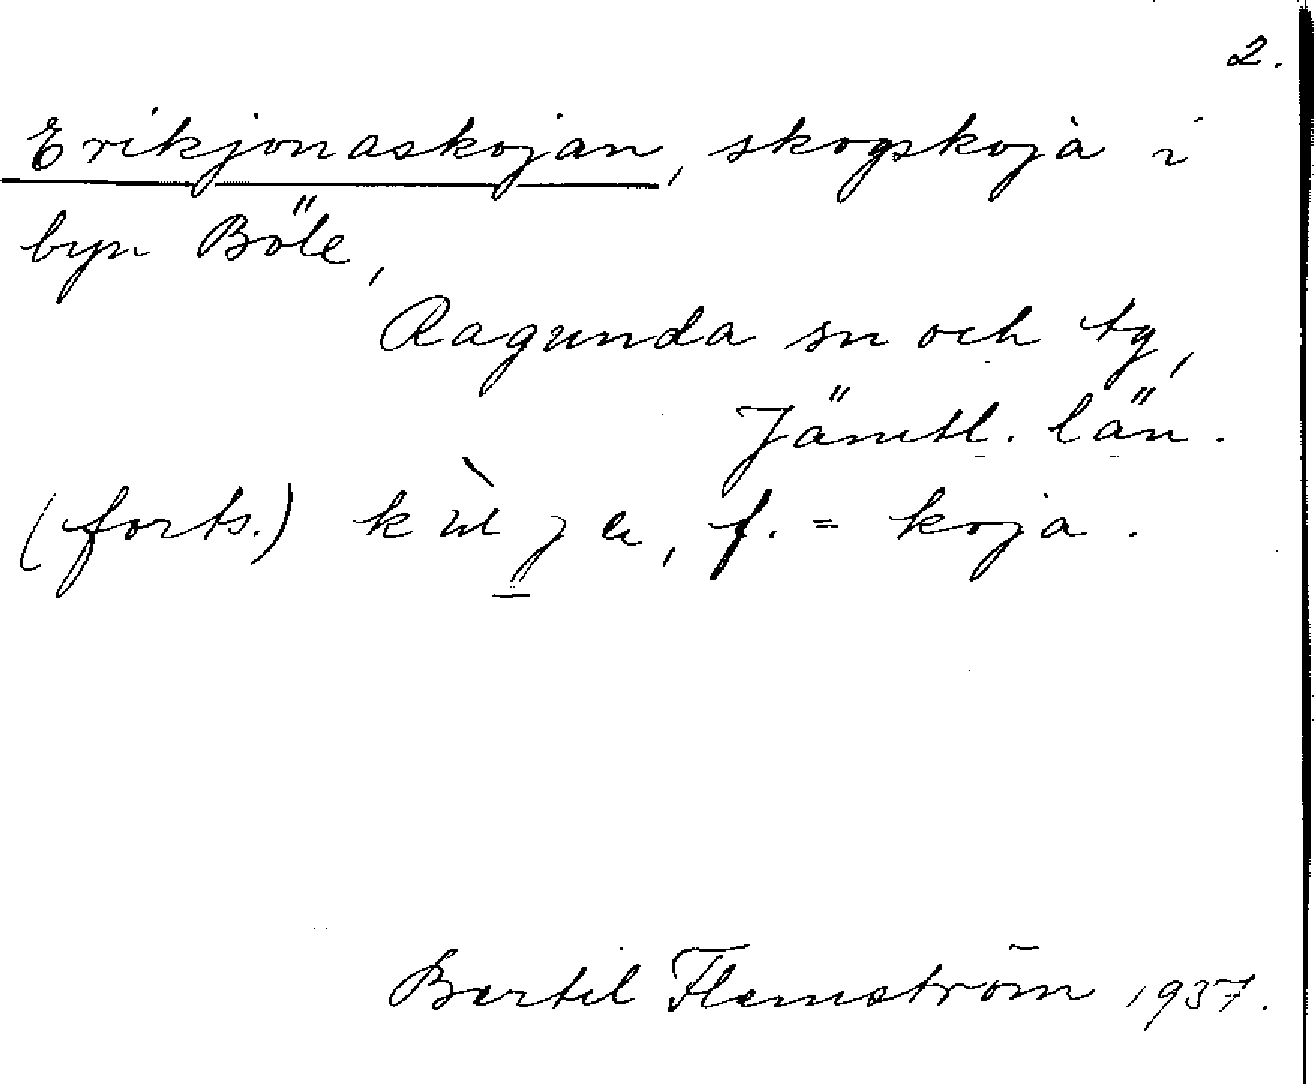 2.
Erikjonaskojan, skogskoja i
byn Böle,
Ragunda sn och tg,
Jämtl. län.
(forts.) f. = koja.
Bertil Flemström 1937.